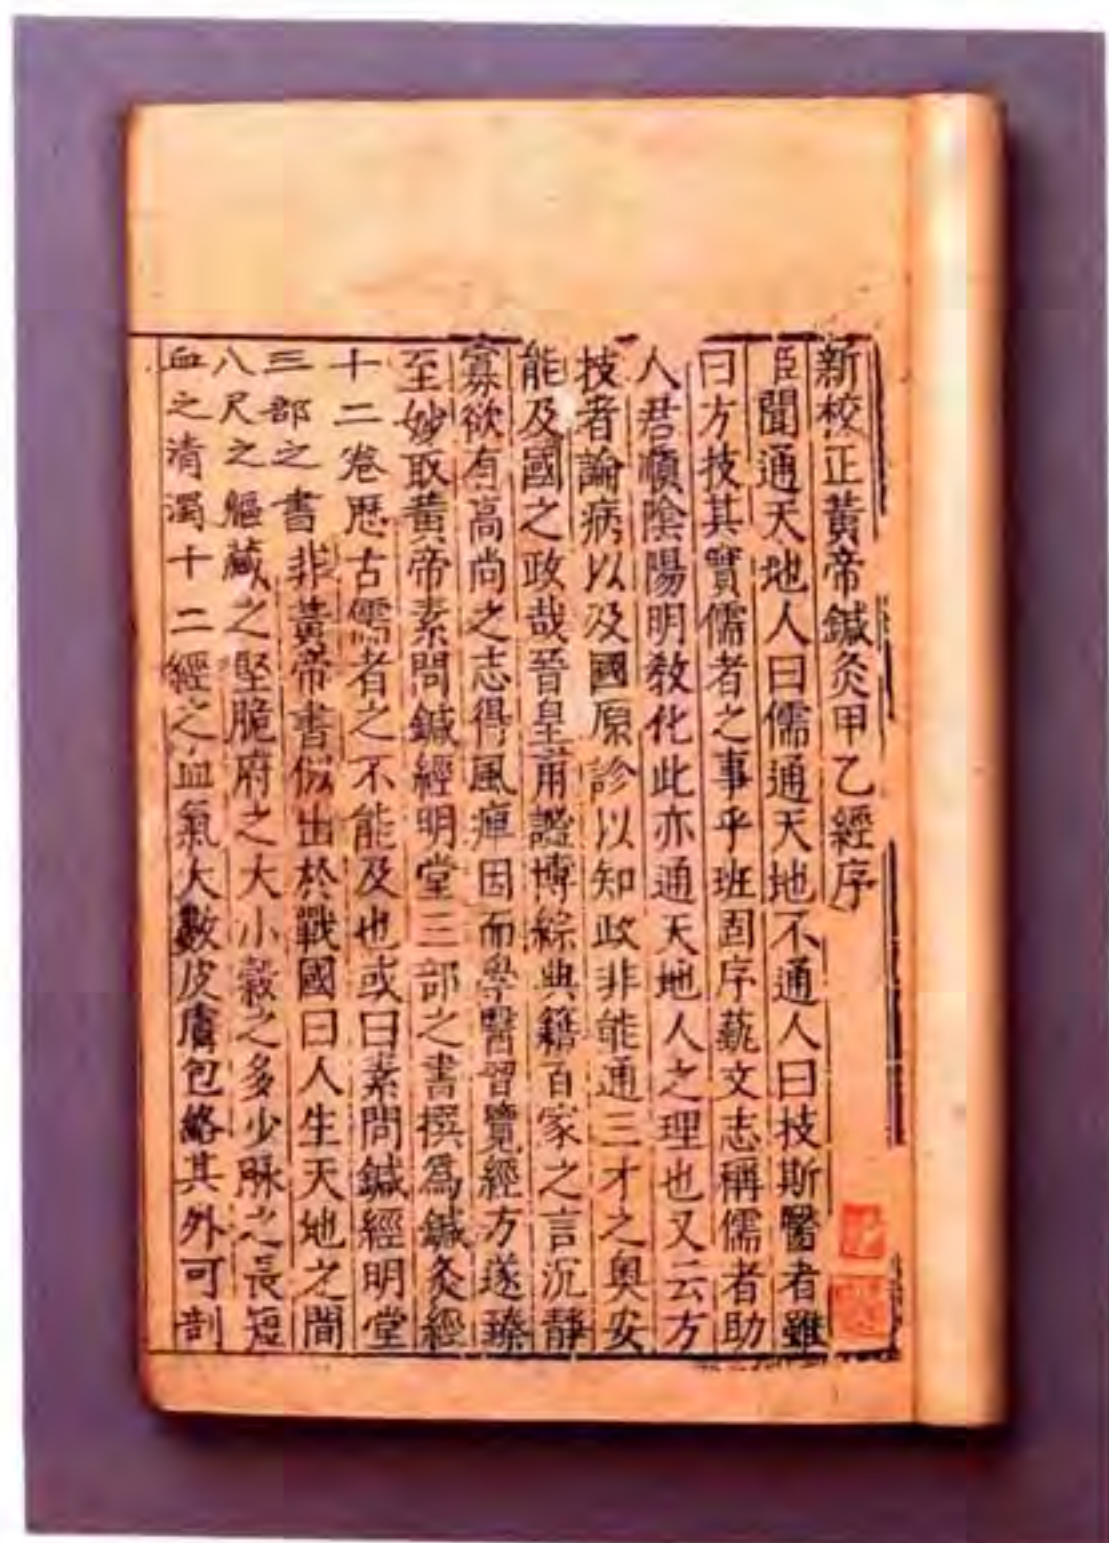 新校正黃帝鍼灸甲乙經序
臣聞通天地人曰儒通天地不通人曰技斯醫者雖
曰方技其實儒者之事乎班固序藝文志稱儒者助
人君順陰陽明教化此亦通天地人之理也又云方
技者論病以及國原診以知政非能通三才之奧安
能及國之政哉晉皇甫謐博綜典籍百家之言沉靜
寡欲有高尚之志得風痺因而學醫習覽經方遂臻
至妙取黃帝素問鍼經明堂三部之書撰爲鍼灸經
十二卷歷古儒者之不能及也或曰素問鍼經明堂
三部之書非黃帝書似出於戰國曰人生天地之間
八尺之軀藏之堅脆府之大小穀之多少脉之長短
血之清濁十二經之血氣大數皮膚包絡其外可剖